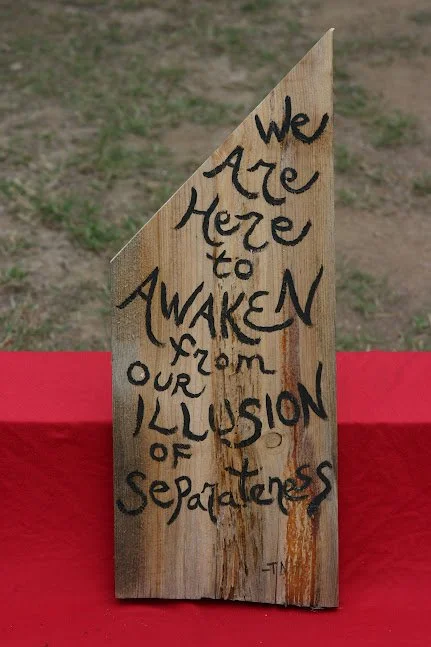 We
Are
Here
to
AWAKEN
from
OUR
ILLUSION
OF
Separateness
-TN